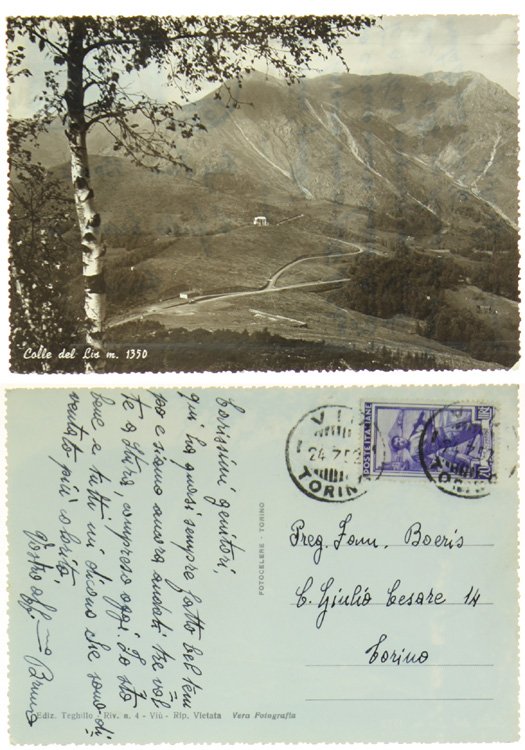 Colle del Lis m. 1350
Carissimi genitori,
qui ha quasi sempre fatto bel tem
po e siamo ancora andati tre vol
te a Stura, compreso oggi. Io sto
bene e tutti mi dicono che sono di
ventato più colorito.
Vostro aff.
Bruno
FOTOCELERE - TORINO
VIÙ
24.7.52
TORINO
POSTE ITALIANE
LIRE
20
TORINO
Preg. Fam. Boeris
C. Giulio Cesare 14
Torino
Ediz. Teghillo - Riv. n. 4 - Viù - Rip. Vietata Vera Fotografia